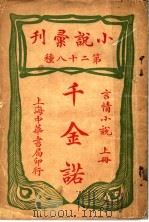 小說彙刊
第二十八種
言情小說 上冊
千金諾
上海中華書局印行